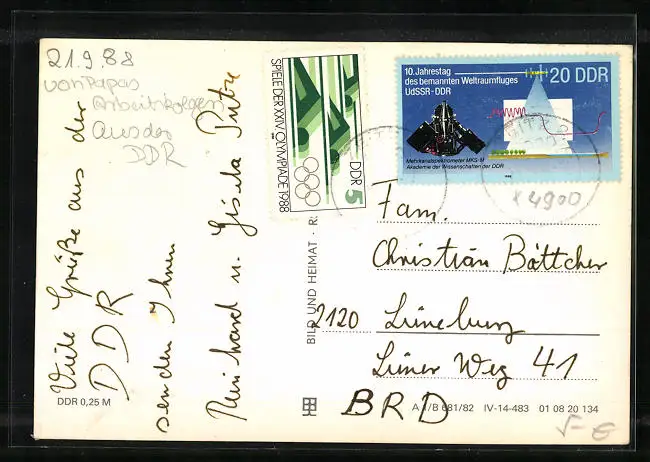 21.9.88
von Papas
Arbeitskolegen
aus der
DDR
Viele Grüße aus der
DDR
senden Ihnen
Reinhard u. Gisela
DDR 0,25 M
SPIELE DER XXIV. OLYMPIADE 1988
DDR 5
10. Jahrestag
des bemannten Weltraumfluges
UdSSR-DDR
20 DDR
Mehrkanalspektrometer MKS-M
Akademie der Wissenschaften der DDR
1988
x 4900
BILD UND HEIMAT · R
Fam.
Christian Böttcher
2120 Lüneburg
Lüner Weg 41
BRD
A 1/B 681/82 IV-14-483 01 08 20 134